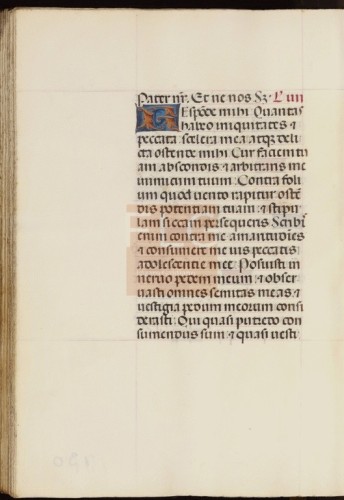 Pater nr̄. Et ne nos. Sz. L' iiii
REspōde mihi Quantas
habeo iniquitates ⁊
peccata scelera mea atqꝫ deli
cta ostende mihi Cur faciem tu
am abscondis ⁊ arbitraris me
inimicum tuum Contra foli
um quod uento rapitur ostē
dis potentiam tuam ⁊ stipu
lam siccam persequeris Scribis
enim contra me amaritudiēs
⁊ consumere me uis peccatis
adolescentie mee Posuisti in
neruo pedem meum ⁊ obser
uasti omnes semitas meas ⁊
uestigia pedum meorum consi
derasti Qui quasi putredo con
sumendus sum ⁊ quasi uesti